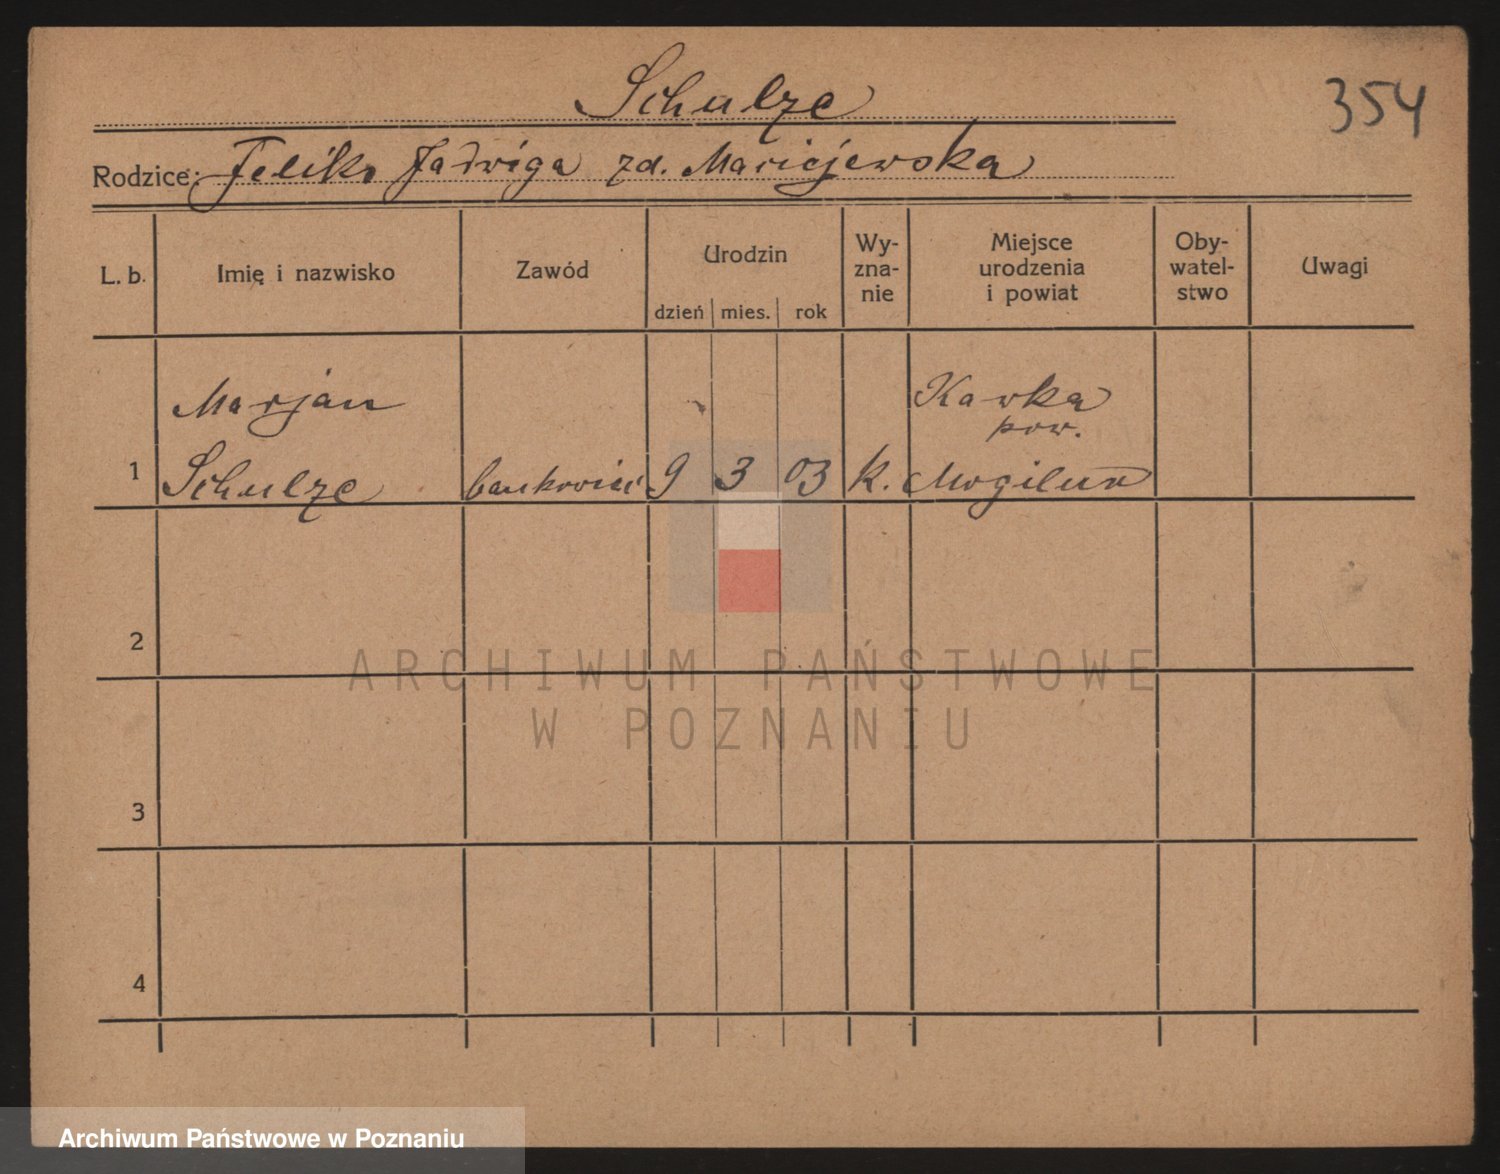 Schulze
354
Rodzice: Feliks Jadwiga zd. Maciejewska
L. b. Imię i nazwisko Zawód Urodzin dzień mies. rok Wy-zna-nie Miejsce urodzenia i powiat Oby-watel-stwo Uwagi
Marjan Kawka
pow.
1 Schulze bankowiec 9 3 03 k. Mogilno
2
ARCHIWUM PAŃSTWOWE
W POZNANIU
3
4
Archiwum Państwowe w Poznaniu